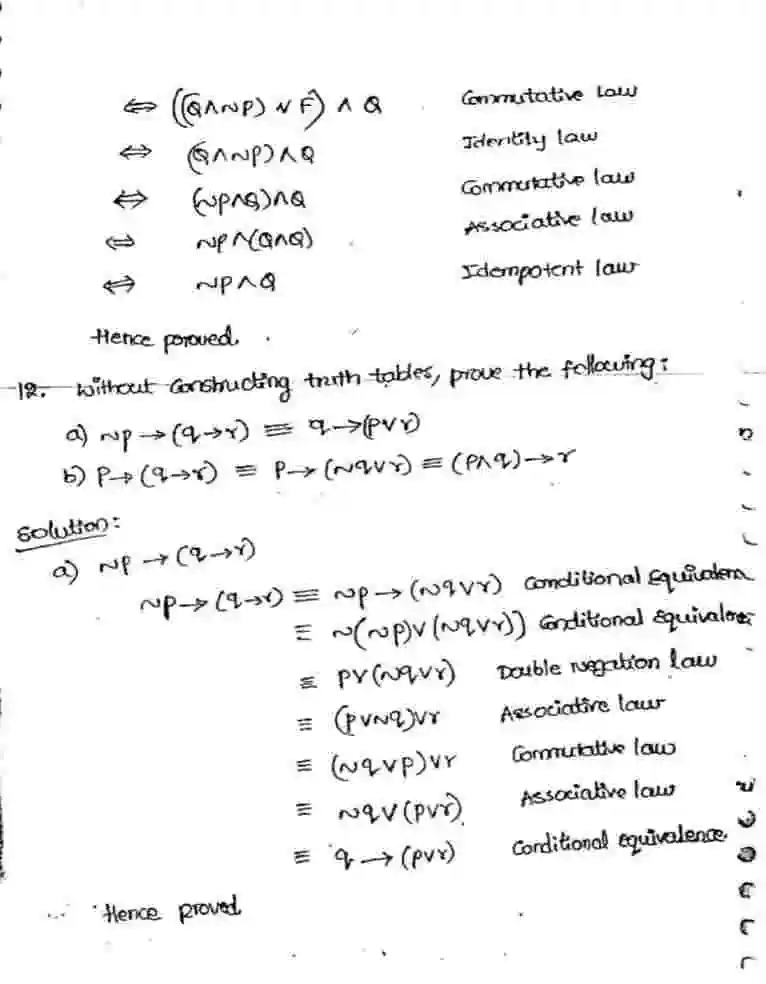 ⇔ ((Q∧~P) ∨ F) ∧ Q Commutative law
⇔ (Q∧~P)∧Q Identity law
⇔ (~P∧Q)∧Q Commutative law
⇔ ~P∧(Q∧Q) Associative law
⇔ ~P∧Q Idempotent law
Hence proved.
12. Without Constructing truth tables, prove the following:
a) ~p → (q→r) ≡ q→(p∨r)
b) P→(q→r) ≡ P→(~q∨r) ≡ (P∧q)→r
Solution:
a) ~p → (q→r)
~p→ (q→r) ≡ ~p → (~q∨r) Conditional Equivalen
≡ ~(~p)∨(~q∨r)) Conditional Equivalen
≡ p∨(~q∨r) Double negation law
≡ (p∨~q)∨r Associative law
≡ (~q∨p)∨r Commutative law
≡ ~q∨(p∨r) Associative law
≡ q → (p∨r) Conditional equivalence
Hence proved